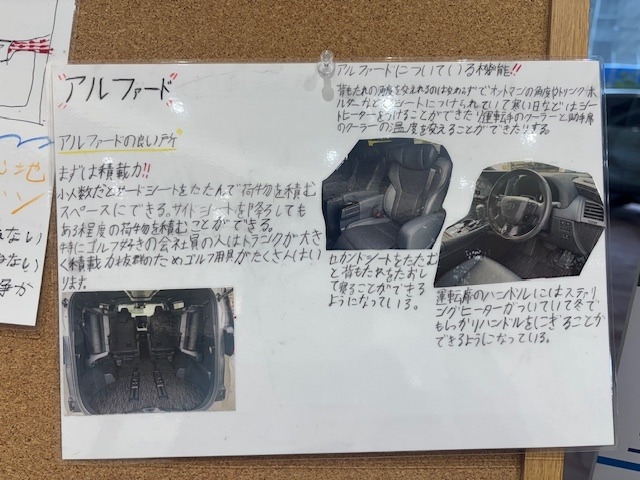 "アルファード"
アルファードの良い所
まずは積載力!!
小人数だとサードシートをたたんで荷物を積む
スペースにできる。サイドシートを降ろしても
ある程度の荷物を積むことができる。
特にゴルフ好きの会社員の人はトランクが大き
く積載力抜群のためゴルフ用具がたくさんはい
ります。
アルファードについている機能!!
背もたれの角度を変えれるのは
オットマンの角度やドリンクホ
ルダーなどが シートにつけられていて寒い日などはシー
トヒーターをつけることができたり運転手のクーラーと助手席
のクーラーの温度を変えることができたりする。
セカンドシートをたたむ
と背もたれをたおし
て寝ることができる
ようになっている。
運転席のハンドルにはステアリ
ングヒーターがついていて冬で
もしっかりハンドルをにぎることが
できるようになっている。
ない
ない